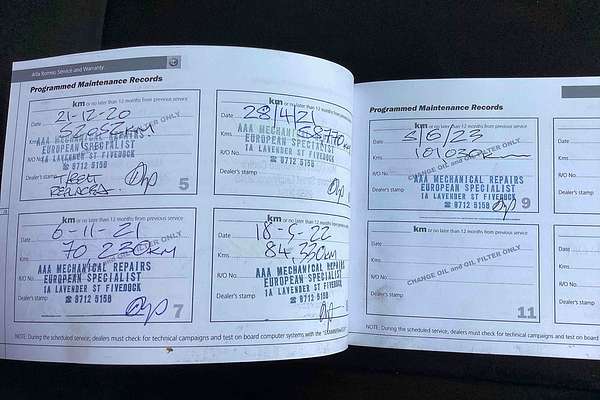 Alfa Romeo Service and Warranty
Programmed Maintenance Records
km or no later than 12 months from previous service
Date 21-12-20
Kms
CHANGE OIL and OIL FILTER ONLY
AAA MECHANICAL REPAIRS
R/O No. EUROPEAN SPECIALIST
1A LAVENDER ST FIVEDOCK
☎ 9712 5158
Dealer's stamp
5
km or no later than 12 months from previous service
Date 28/4/21
Kms 58770
AAA MECHANICAL REPAIRS
R/O No. EUROPEAN SPECIALIST
1A LAVENDER ST FIVEDOCK
☎ 9712 5158
Dealer's stamp
km or no later than 12 months from previous service
Date 6-11-21
Kms 70 230KM
CHANGE OIL and OIL FILTER ONLY
AAA MECHANICAL REPAIRS
R/O No. EUROPEAN SPECIALIST
1A LAVENDER ST FIVEDOCK
Dealer's stamp ☎ 9712 5158
7
km or no later than 12 months from previous service
Date 18-5-22
Kms 84,330KM
AAA MECHANICAL REPAIRS
R/O No. EUROPEAN SPECIALIST
1A LAVENDER ST FIVEDOCK
Dealer's stamp ☎ 9712 5158
NOTE: During the scheduled service, dealers must check for technical campaigns and test on board computer systems with the
Programmed Maintenance Records
km or no later than 12 months from previous service
Date 3/6/23
Kms 101030
CHANGE OIL and OIL FILTER ONLY
R/O No. AAA MECHANICAL REPAIRS
EUROPEAN SPECIALIST
Dealer's stamp 1A LAVENDER ST FIVEDOCK
☎ 9712 5158
9
km or no later than 12 months from previous service
Date
Kms
CHANGE OIL and OIL FILTER ONLY
R/O No.
Dealer's stamp
11
NOTE: During the scheduled service, dealers must check for technical campaigns and test on board